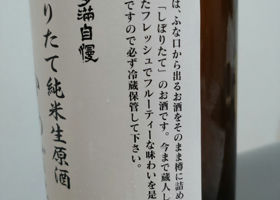 は、ふな口から出るお酒をそのまま樽に詰め
「しぼりたて」のお酒です。今まで蔵人し
たフレッシュでフルーティーな味わいを是
ですので必ず冷蔵保管して下さい。
満自慢
りたて純米生原酒